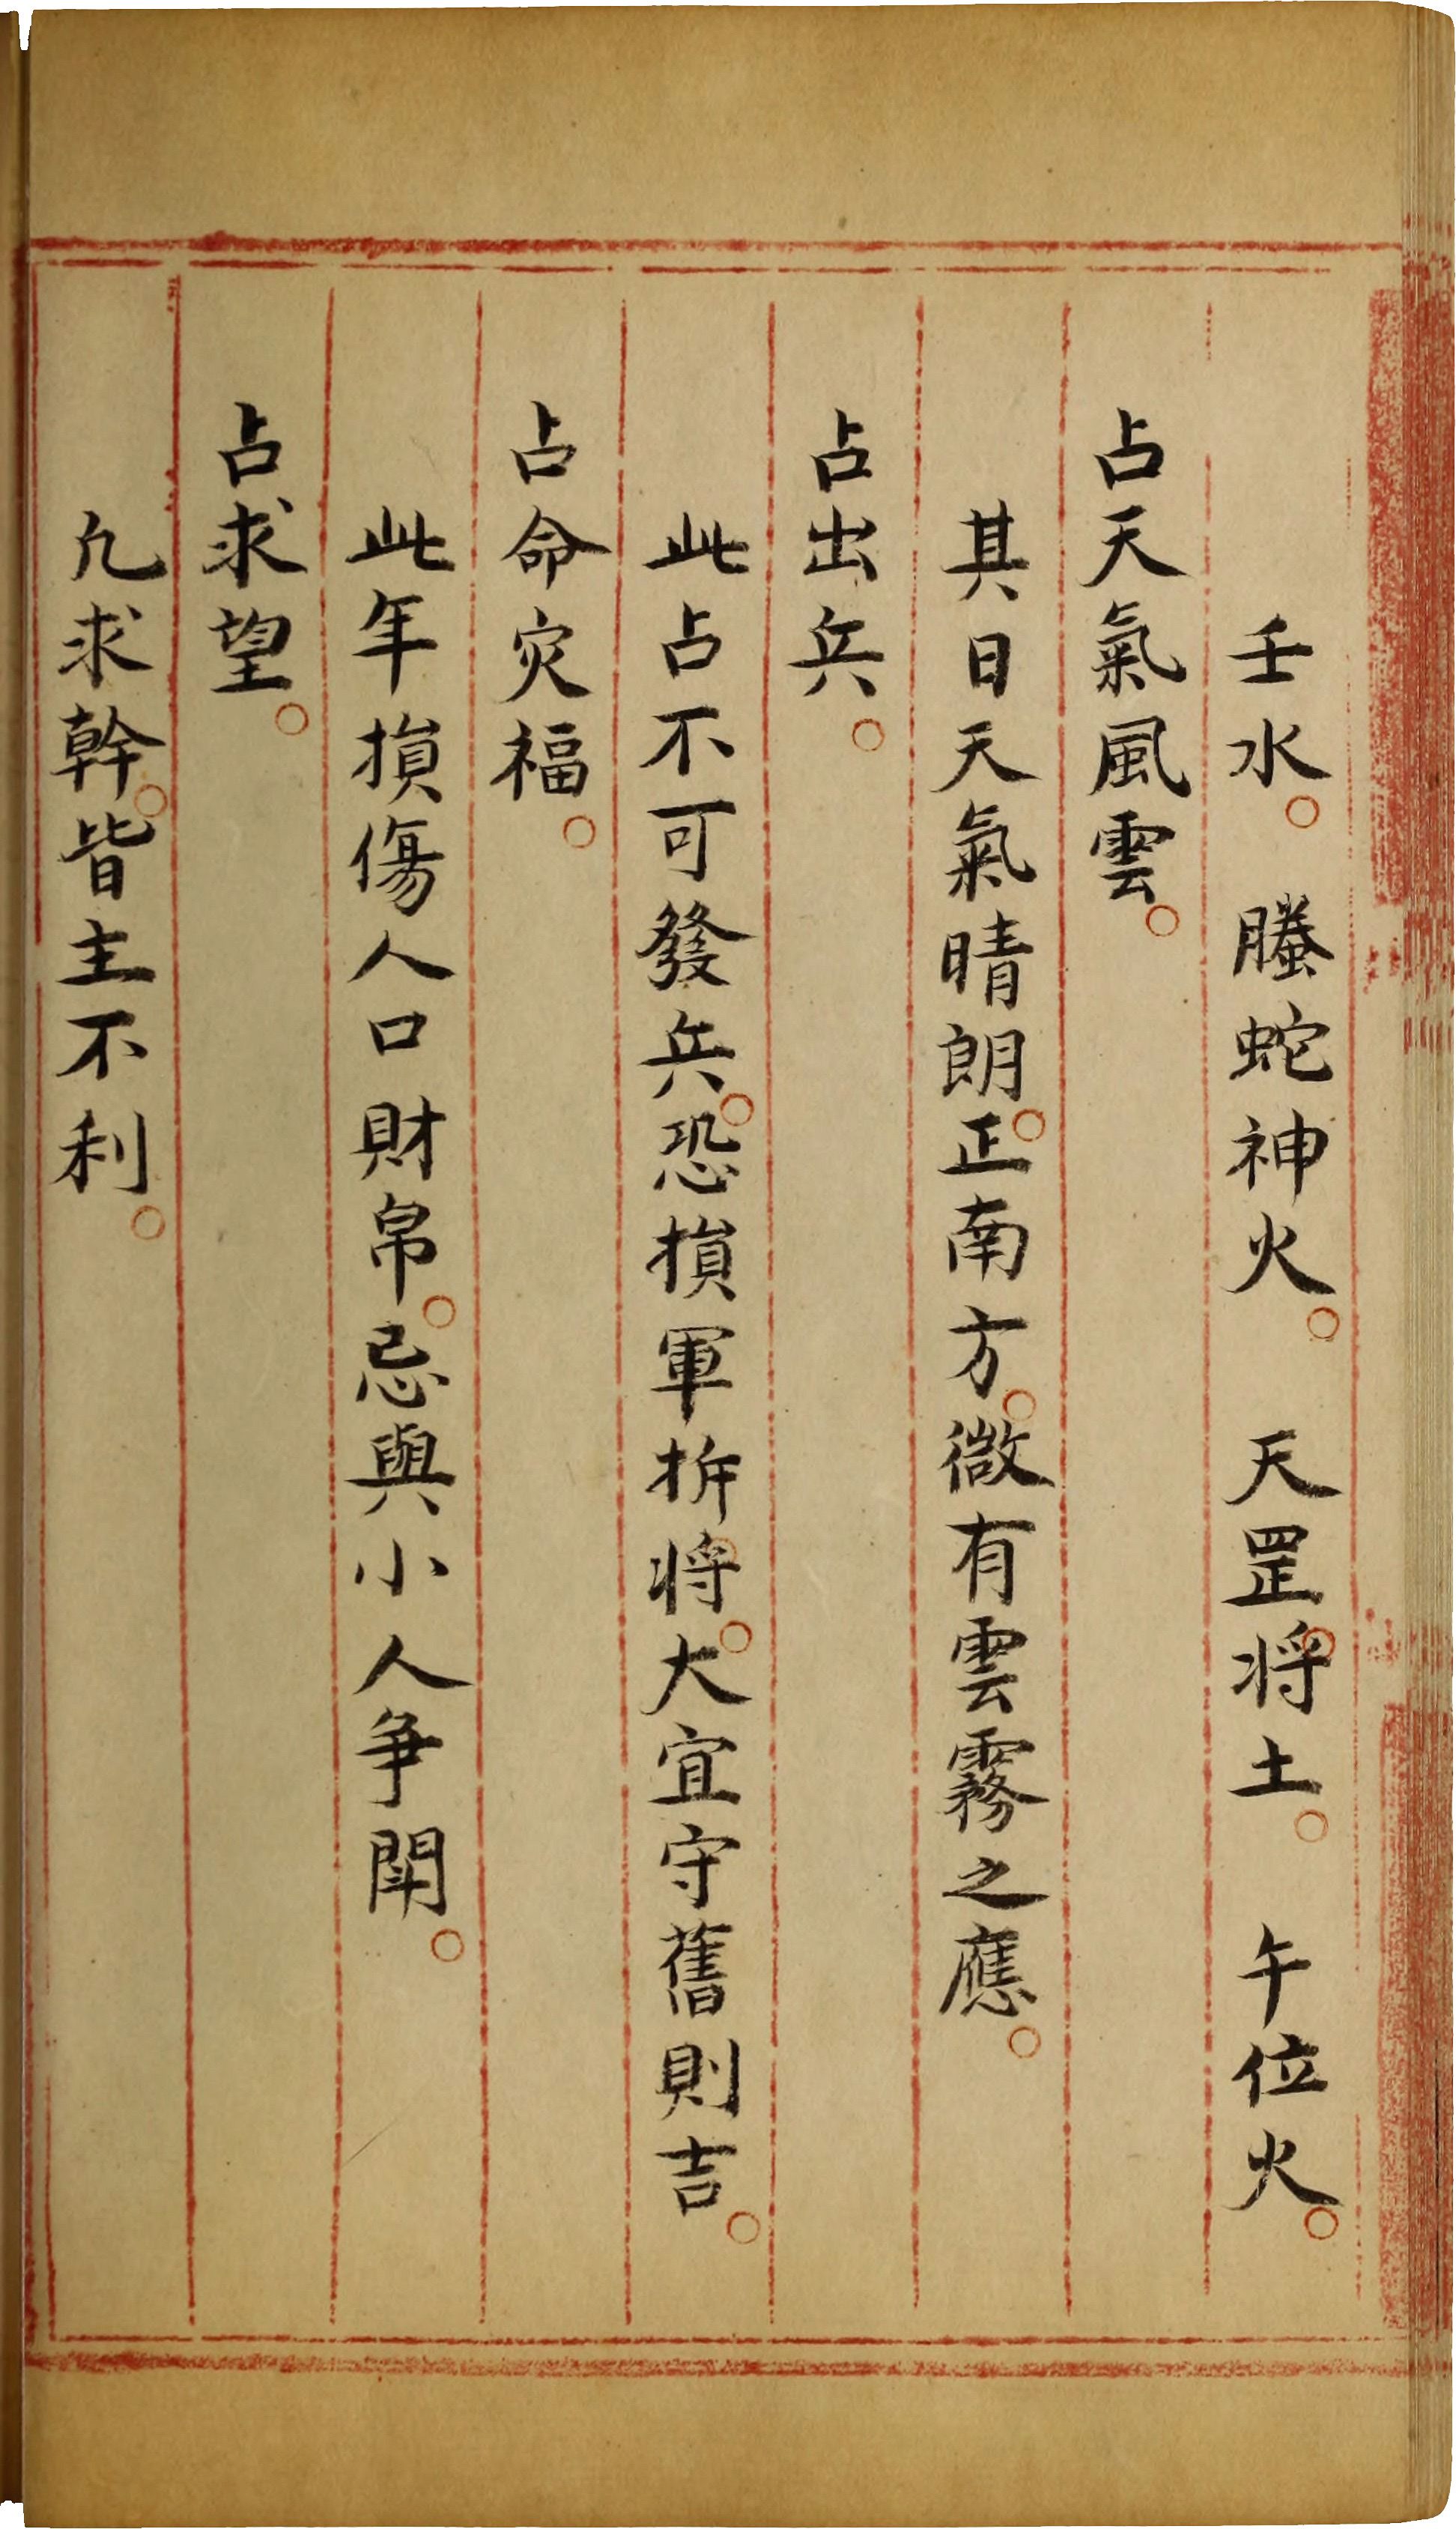 壬水。　螣蛇神火。　天罡将土。　午位火。
占天氣風雲。
其日天氣晴朗。正南方。微有雲霧之應。
占出兵。
此占不可發兵。恐損軍折将。大宜守舊則吉。
占命灾福。
此年損傷人口財帛。忌與小人爭鬧。
占求望。
凢求幹。皆主不利。